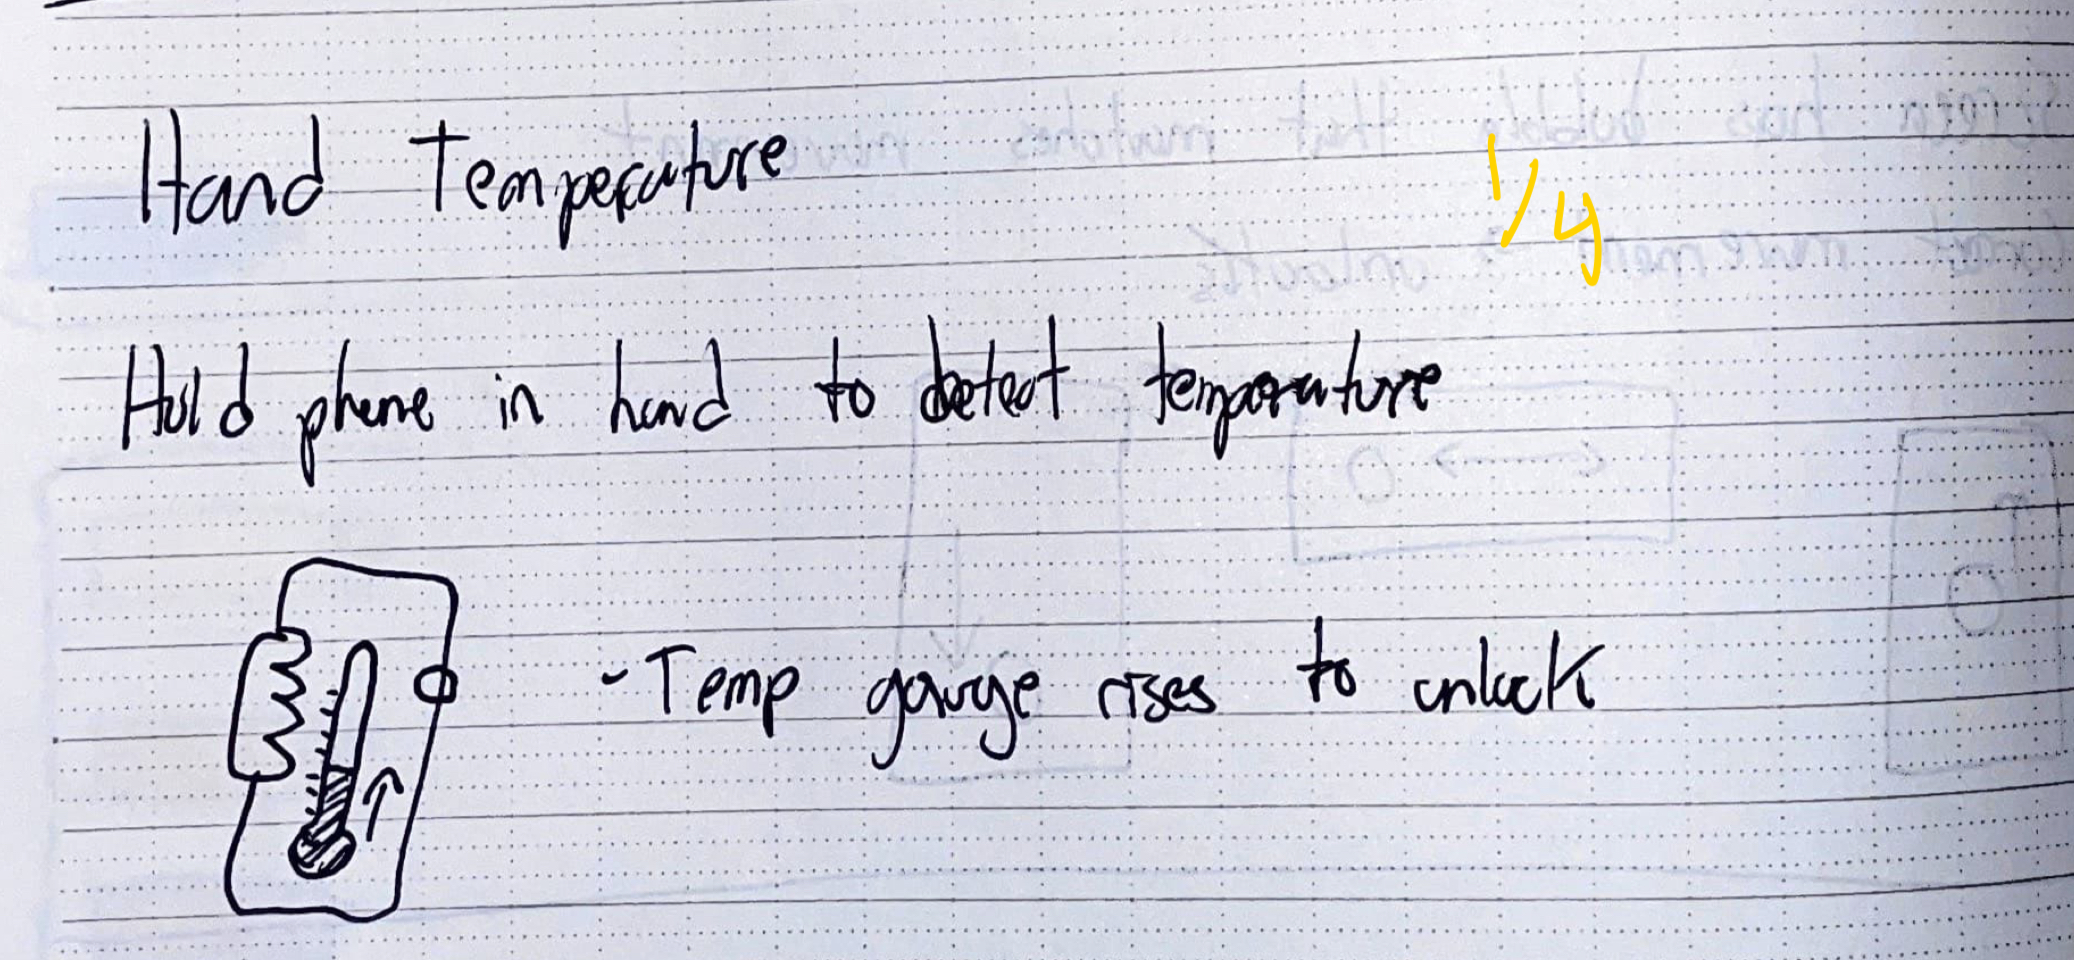 Hand Temperature
1/4
Hold phone in hand to detect temperature
- Temp gauge rises to unlock